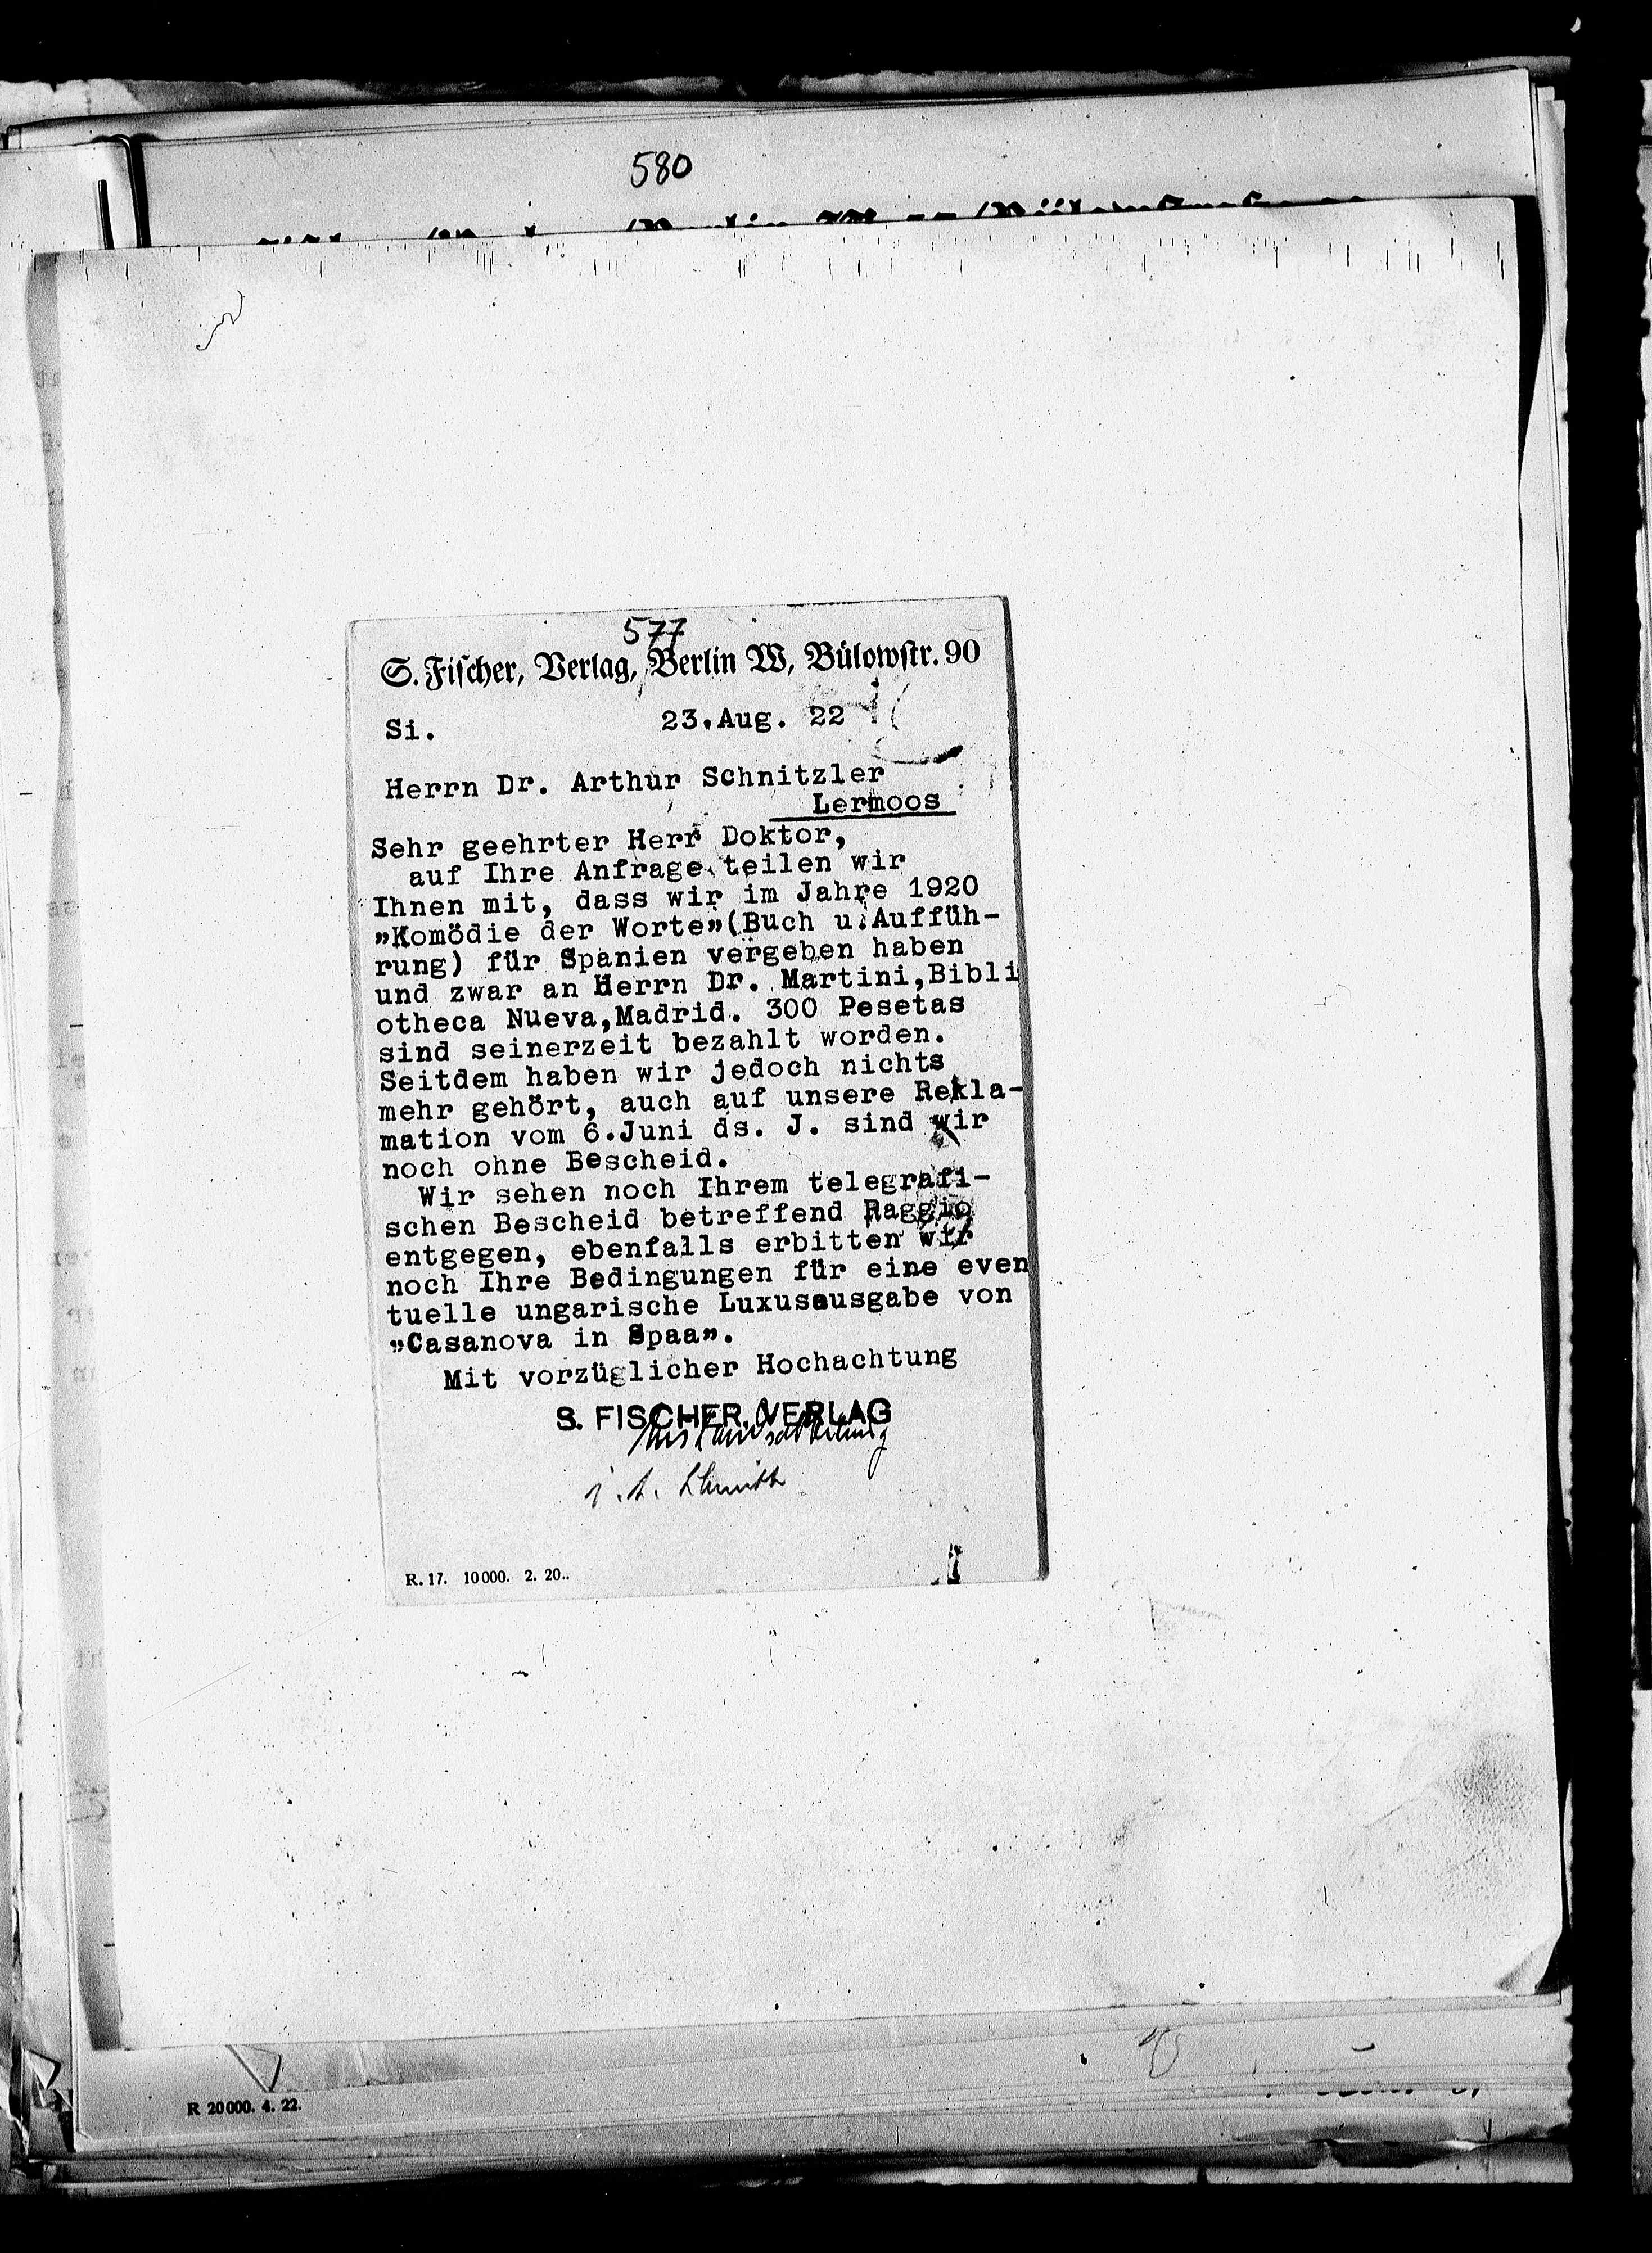 580
577
S. Fiſcher, Verlag, Berlin W, Bülowſtr. 90
Si. 23.Aug. 22
Herrn Dr. Arthur Schnitzler
Lermoos
Sehr geehrter Herr Doktor,
auf Ihre Anfrage teilen wir
Ihnen mit, dass wir im Jahre 1920
„Komödie der Worte„(Buch u.Auffüh-
rung) für Spanien vergeben haben
und zwar an Herrn Dr. Martini,Bibli
otheca Nueva,Madrid. 300 Pesetas
sind seinerzeit bezahlt worden.
Seitdem haben wir jedoch nichts
mehr gehört, auch auf unsere Rekla-
mation vom 6.Juni ds. J. sind wir
noch ohne Bescheid.
Wir sehen noch Ihrem telegrafi-
schen Bescheid betreffend Raggio
entgegen, ebenfalls erbitten wir
noch Ihre Bedingungen für eine even
tuelle ungarische Luxusausgabe von
„Casanova in Spaa„.
Mit vorzüglicher Hochachtung
S. FISCHER, VERLAG
Auslandsabteilung
i. A. Schmidt
R. 17. 10000. 2. 20..
R 20000. 4. 22.